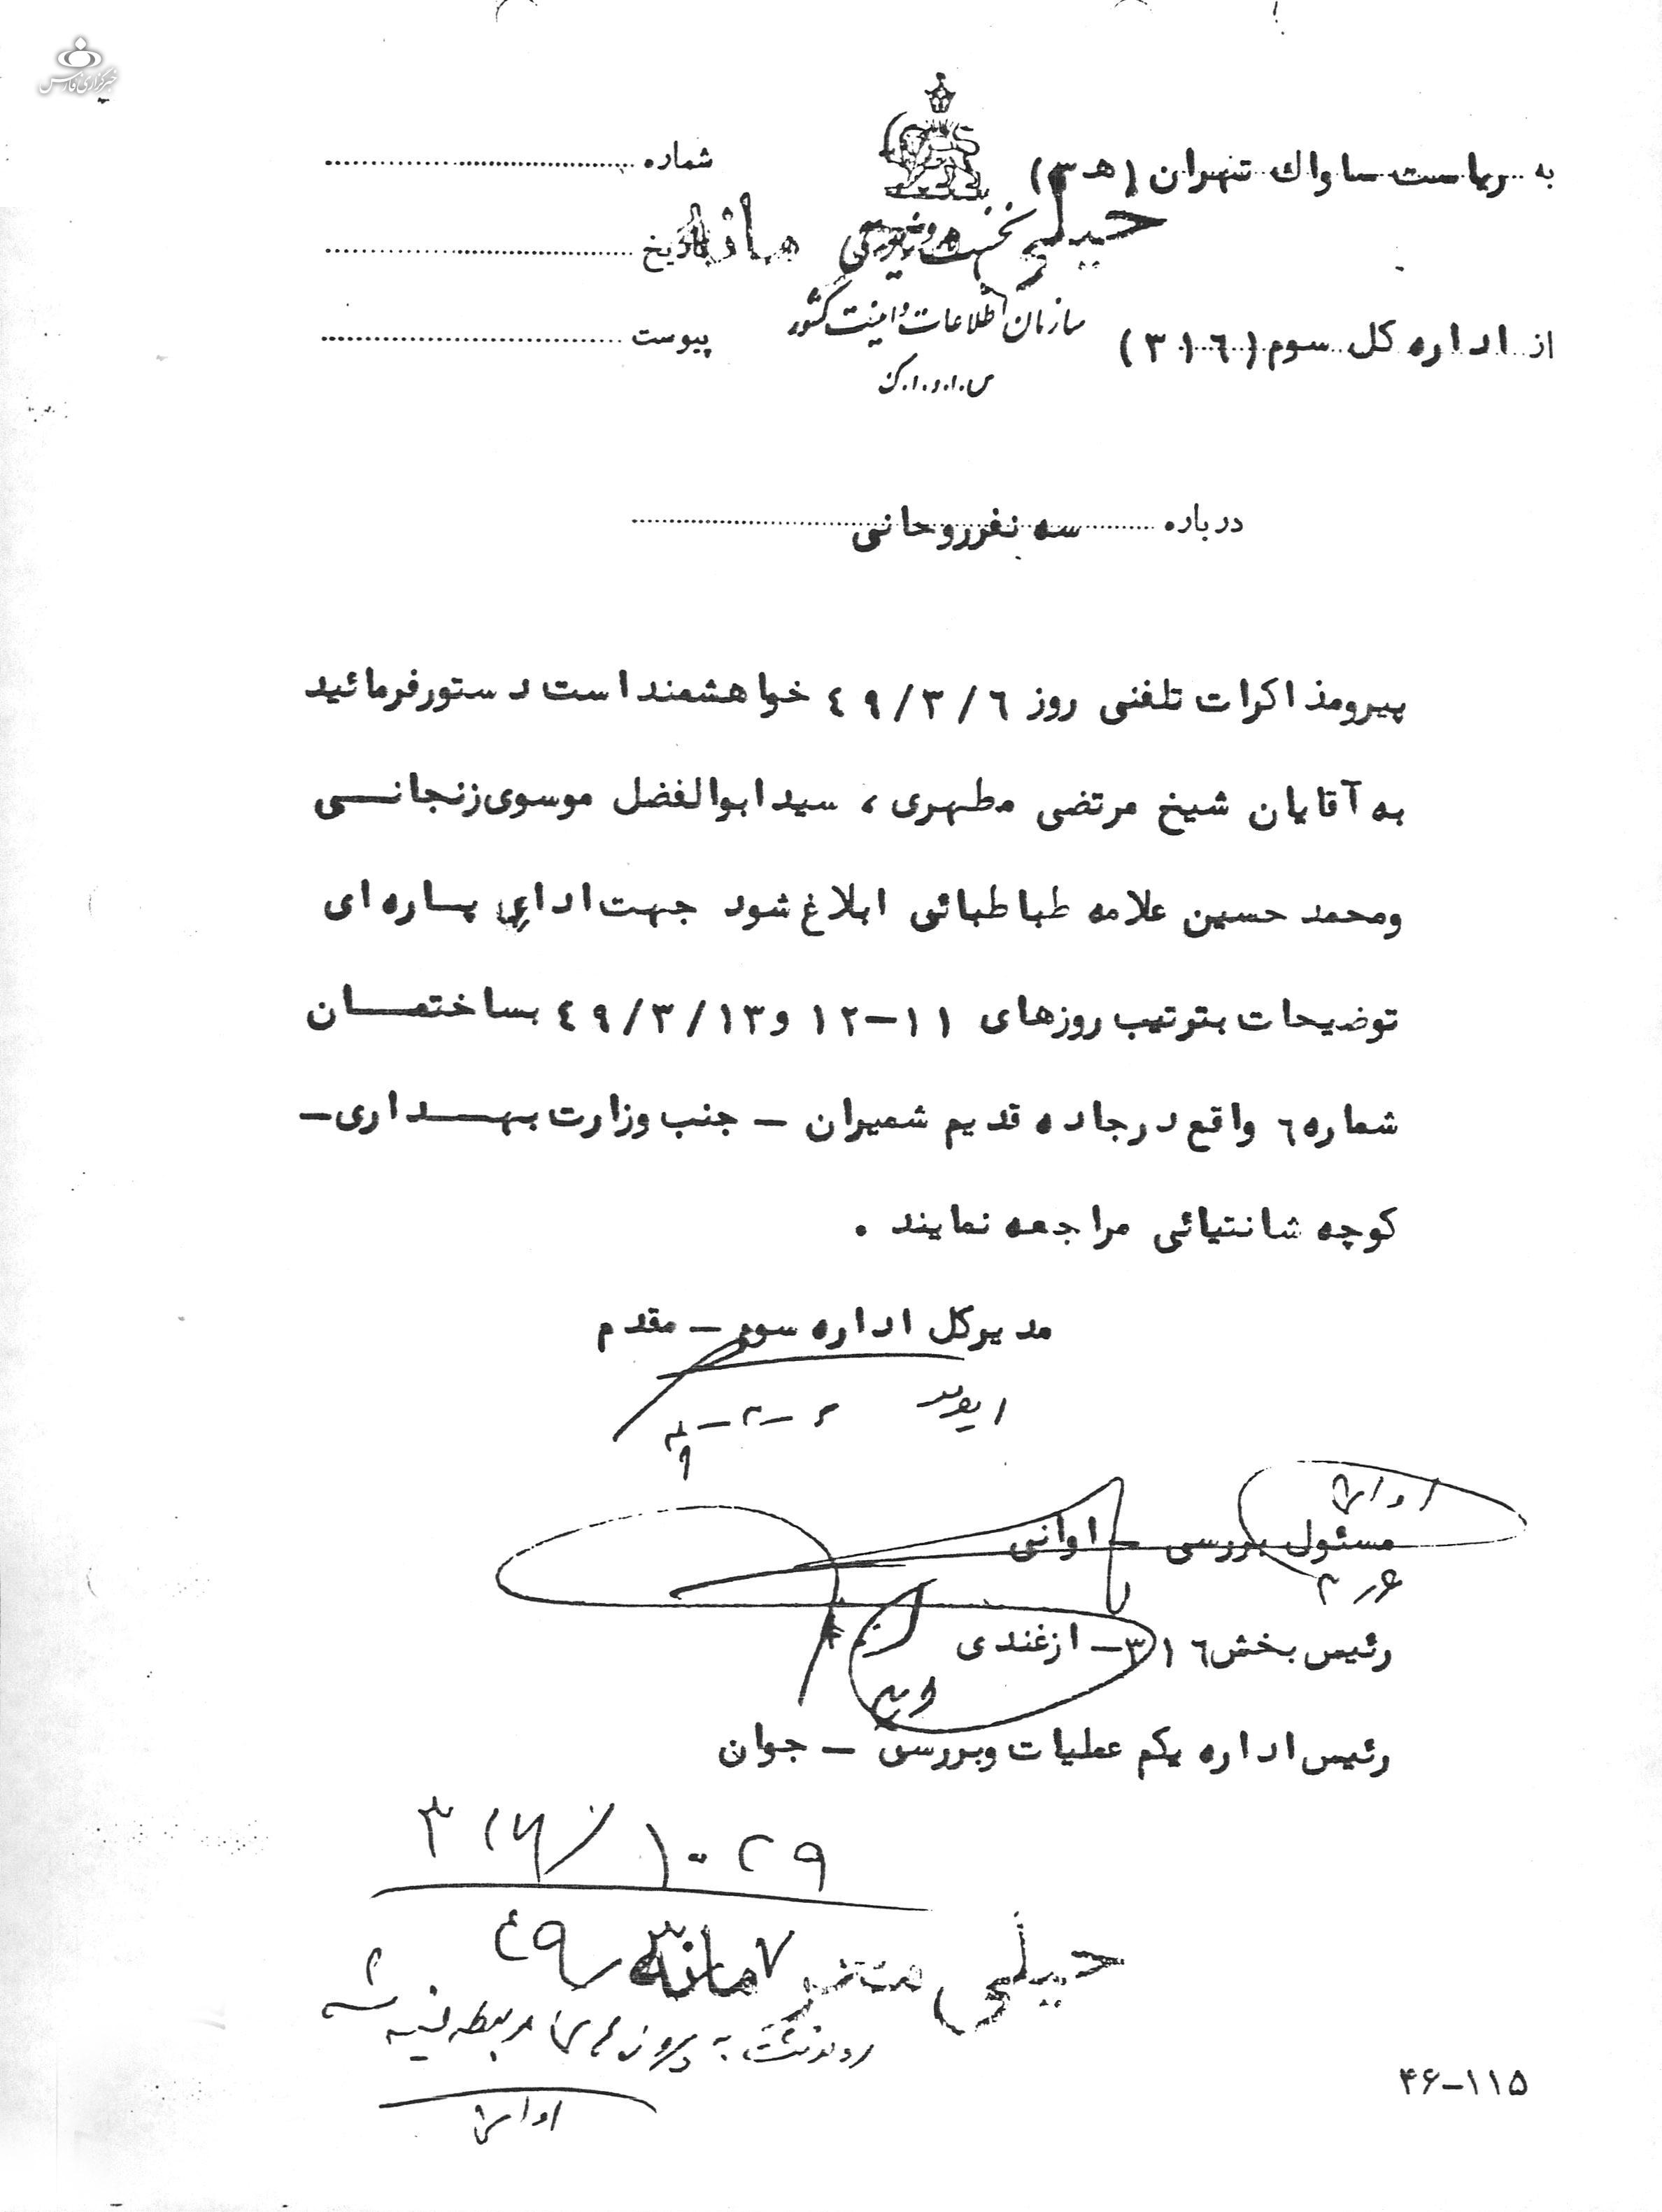 خبرگزاری فارس
به ریاست ساواک تهران (ه ۳)
شماره
خیلی محرمانه
نخست وزیری
تاریخ
سازمان اطلاعات و امنیت کشور
از اداره کل سوم (۳۱۶)
پیوست
س.ا.و.ا.ک
درباره سه نفر روحانی
پیرو مذاکرات تلفنی روز ٤٩/٣/٦ خواهشمند است دستور فرمائید
به آقایان شیخ مرتضی مطهری ، سید ابوالفضل موسوی زنجانی
و محمد حسین علامه طباطبائی ابلاغ شود جهت ادای پاره ای
توضیحات بترتیب روزهای ۱۱-۱۲ و ٤٩/٣/١٣ بساختمان
شماره ٦ واقع در جاده قدیم شمیران - جنب وزارت بهداری -
کوچه شانتیائی مراجعه نمایند .
مدیرکل اداره سوم - مقدم
مسئول بررسی - اوانی
رئیس بخش ٣١٦ - ازغندی
رئیس اداره یکم عملیات و بررسی - جوان
۳۱۶/۱۰۲۹
٤٩/٣/٧
خیلی محرمانه
رونوشت به پرونده های مربطه ضمیمه شد
۴۶-۱۱۵